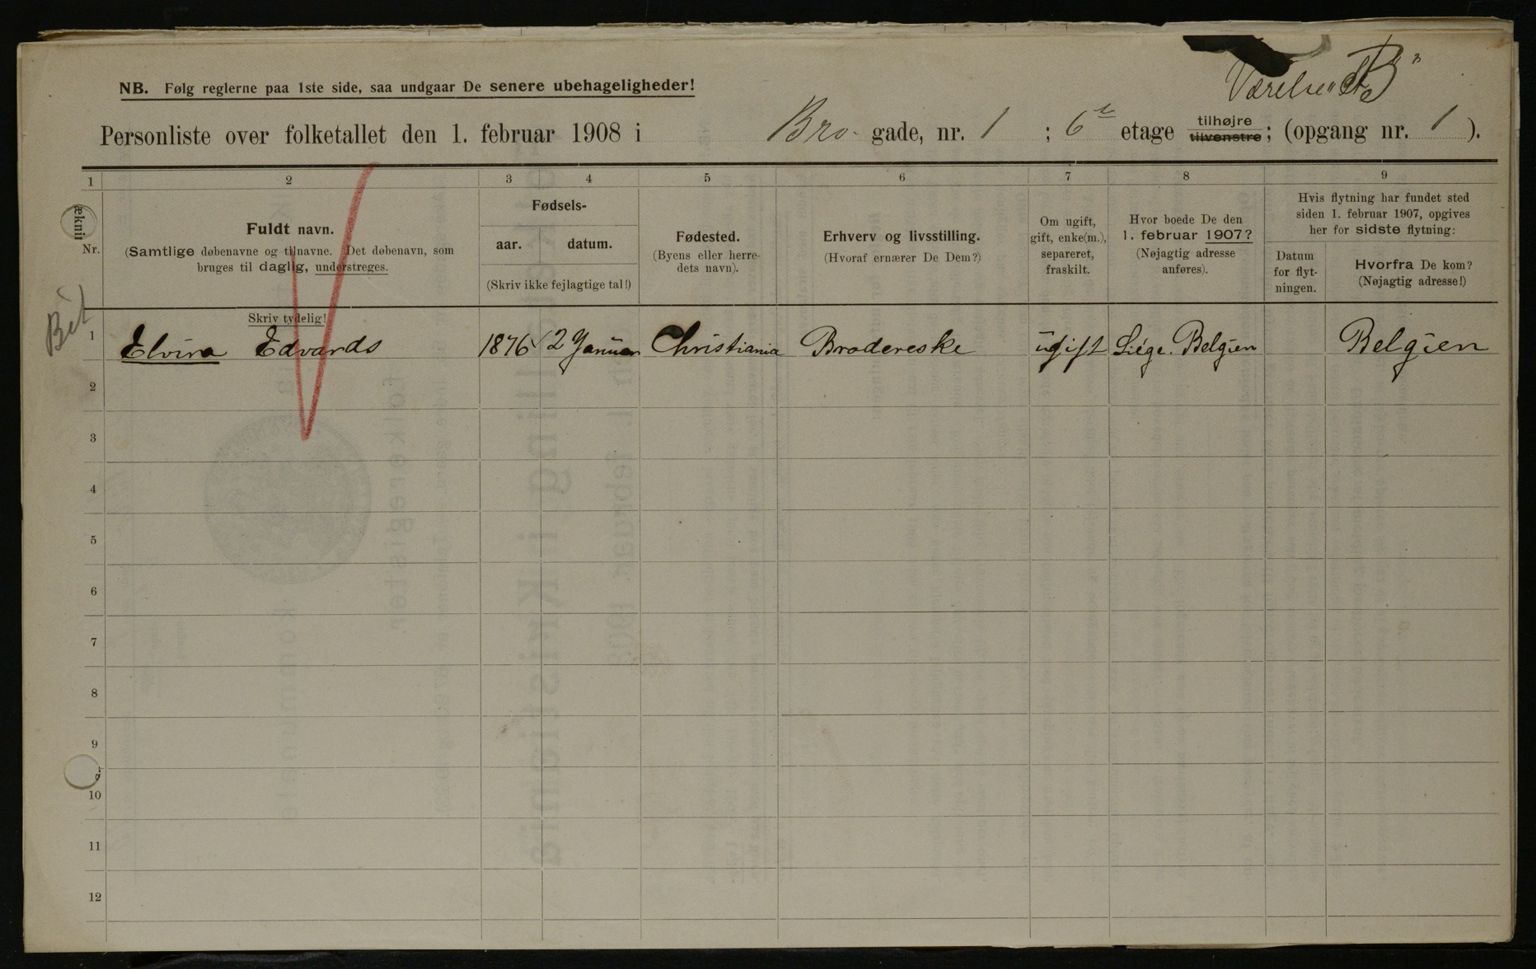 NB. Følg reglerne paa 1ste side, saa undgaar De senere ubehageligheder!
Værelse "B"
Personliste over folketallet den 1. februar 1908 i Bro- gade, nr. 1 ; 6te etage tilhøjre tilvenstre; (opgang nr. 1 ).
1 2 3 4 5 6 7 8 9
Nr.
Fuldt navn.
(Samtlige døbenavne og tilnavne. Det døbenavn, som
bruges til daglig, understreges.
Skriv tydelig!
Fødsels-
aar. datum.
(Skriv ikke fejlagtige tal!)
Fødested.
(Byens eller herre-
dets navn).
Erhverv og livsstilling.
(Hvoraf ernærer De Dem?)
Om ugift,
gift, enke(m.),
separeret,
fraskilt.
Hvor boede De den
1. februar 1907?
(Nøjagtig adresse
anføres).
Hvis flytning har fundet sted
siden 1. februar 1907, opgives
her for sidste flytning:
Datum
for flyt-
ningen.
Hvorfra De kom?
(Nøjagtig adresse!)
Bet
1 Elvira Edvards 1876 2 Januar Christiania Brodereske ugift Liége. Belgien Belgien
2
3
4
5
6
7
8
9
10
11
12